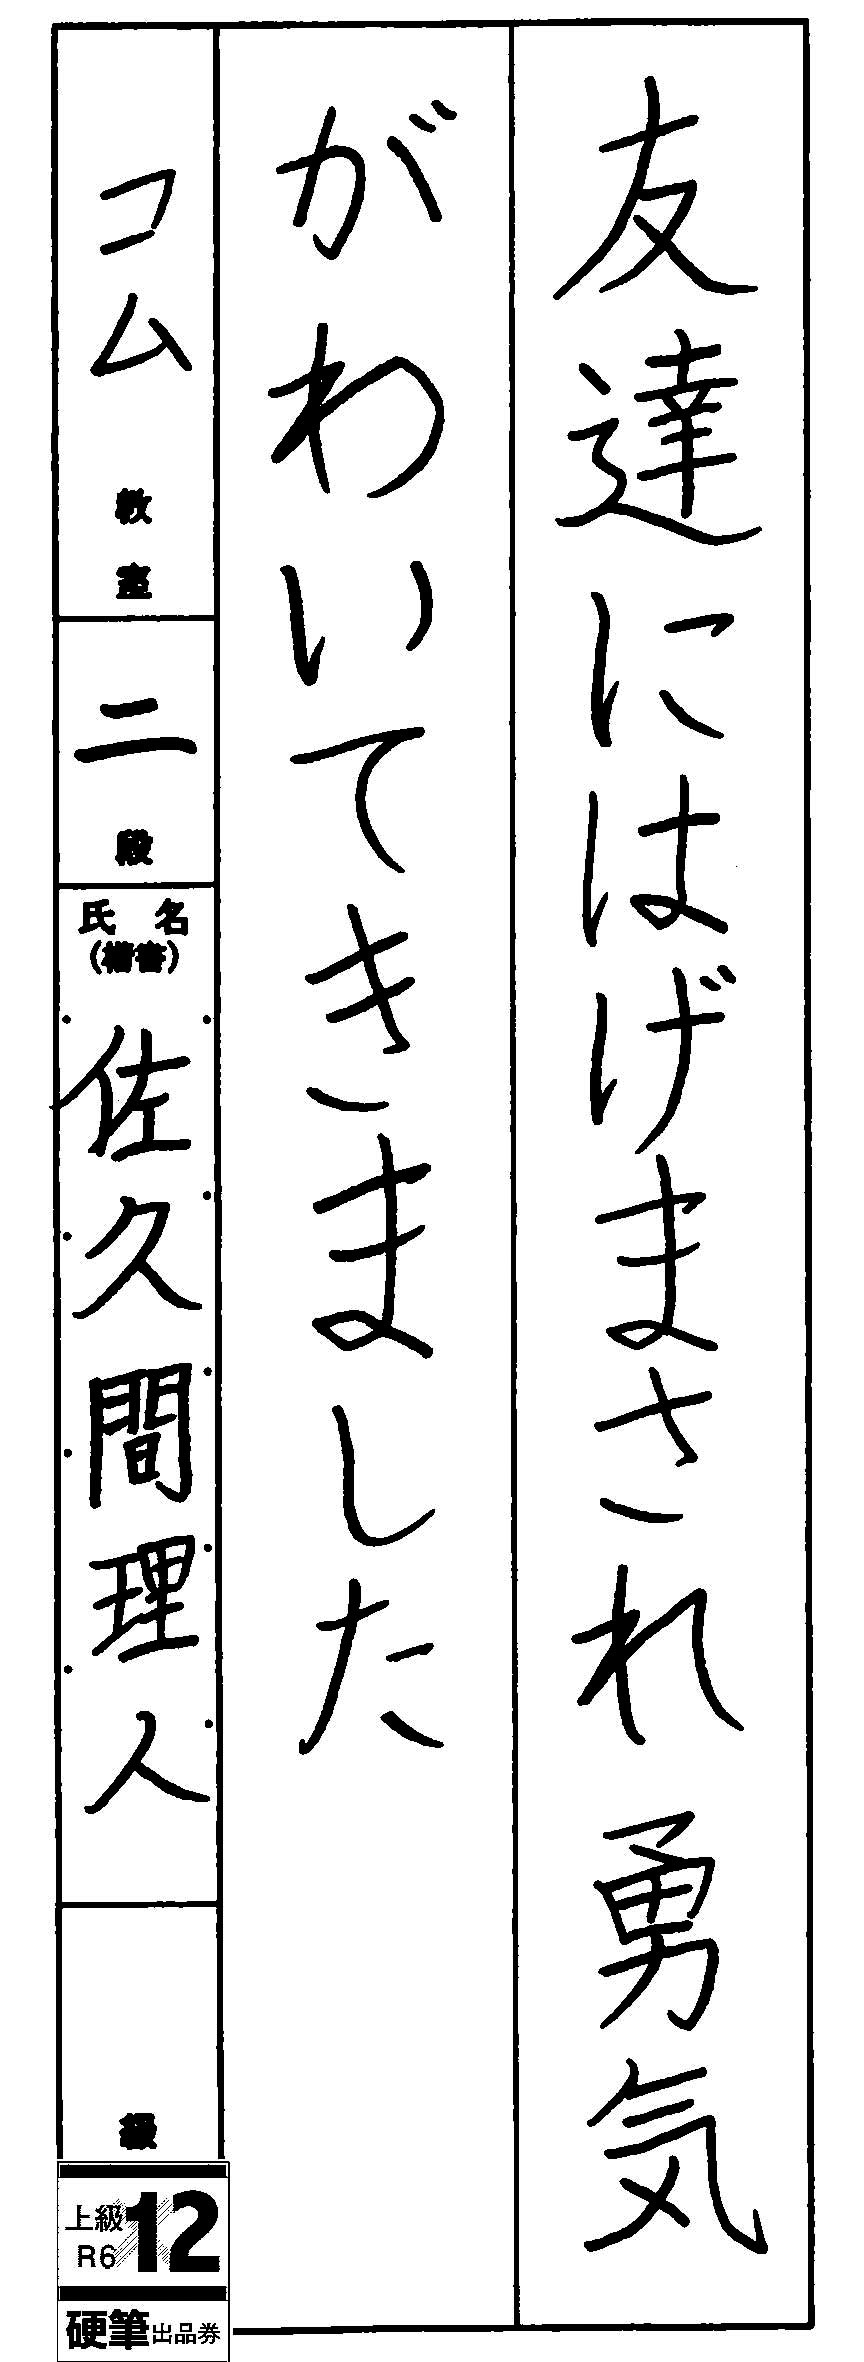 友達にはげまされ勇気
がわいてきました
コム教室
二段
氏名
(楷書)
佐久間理人
級
上級
R6
12
硬筆出品券